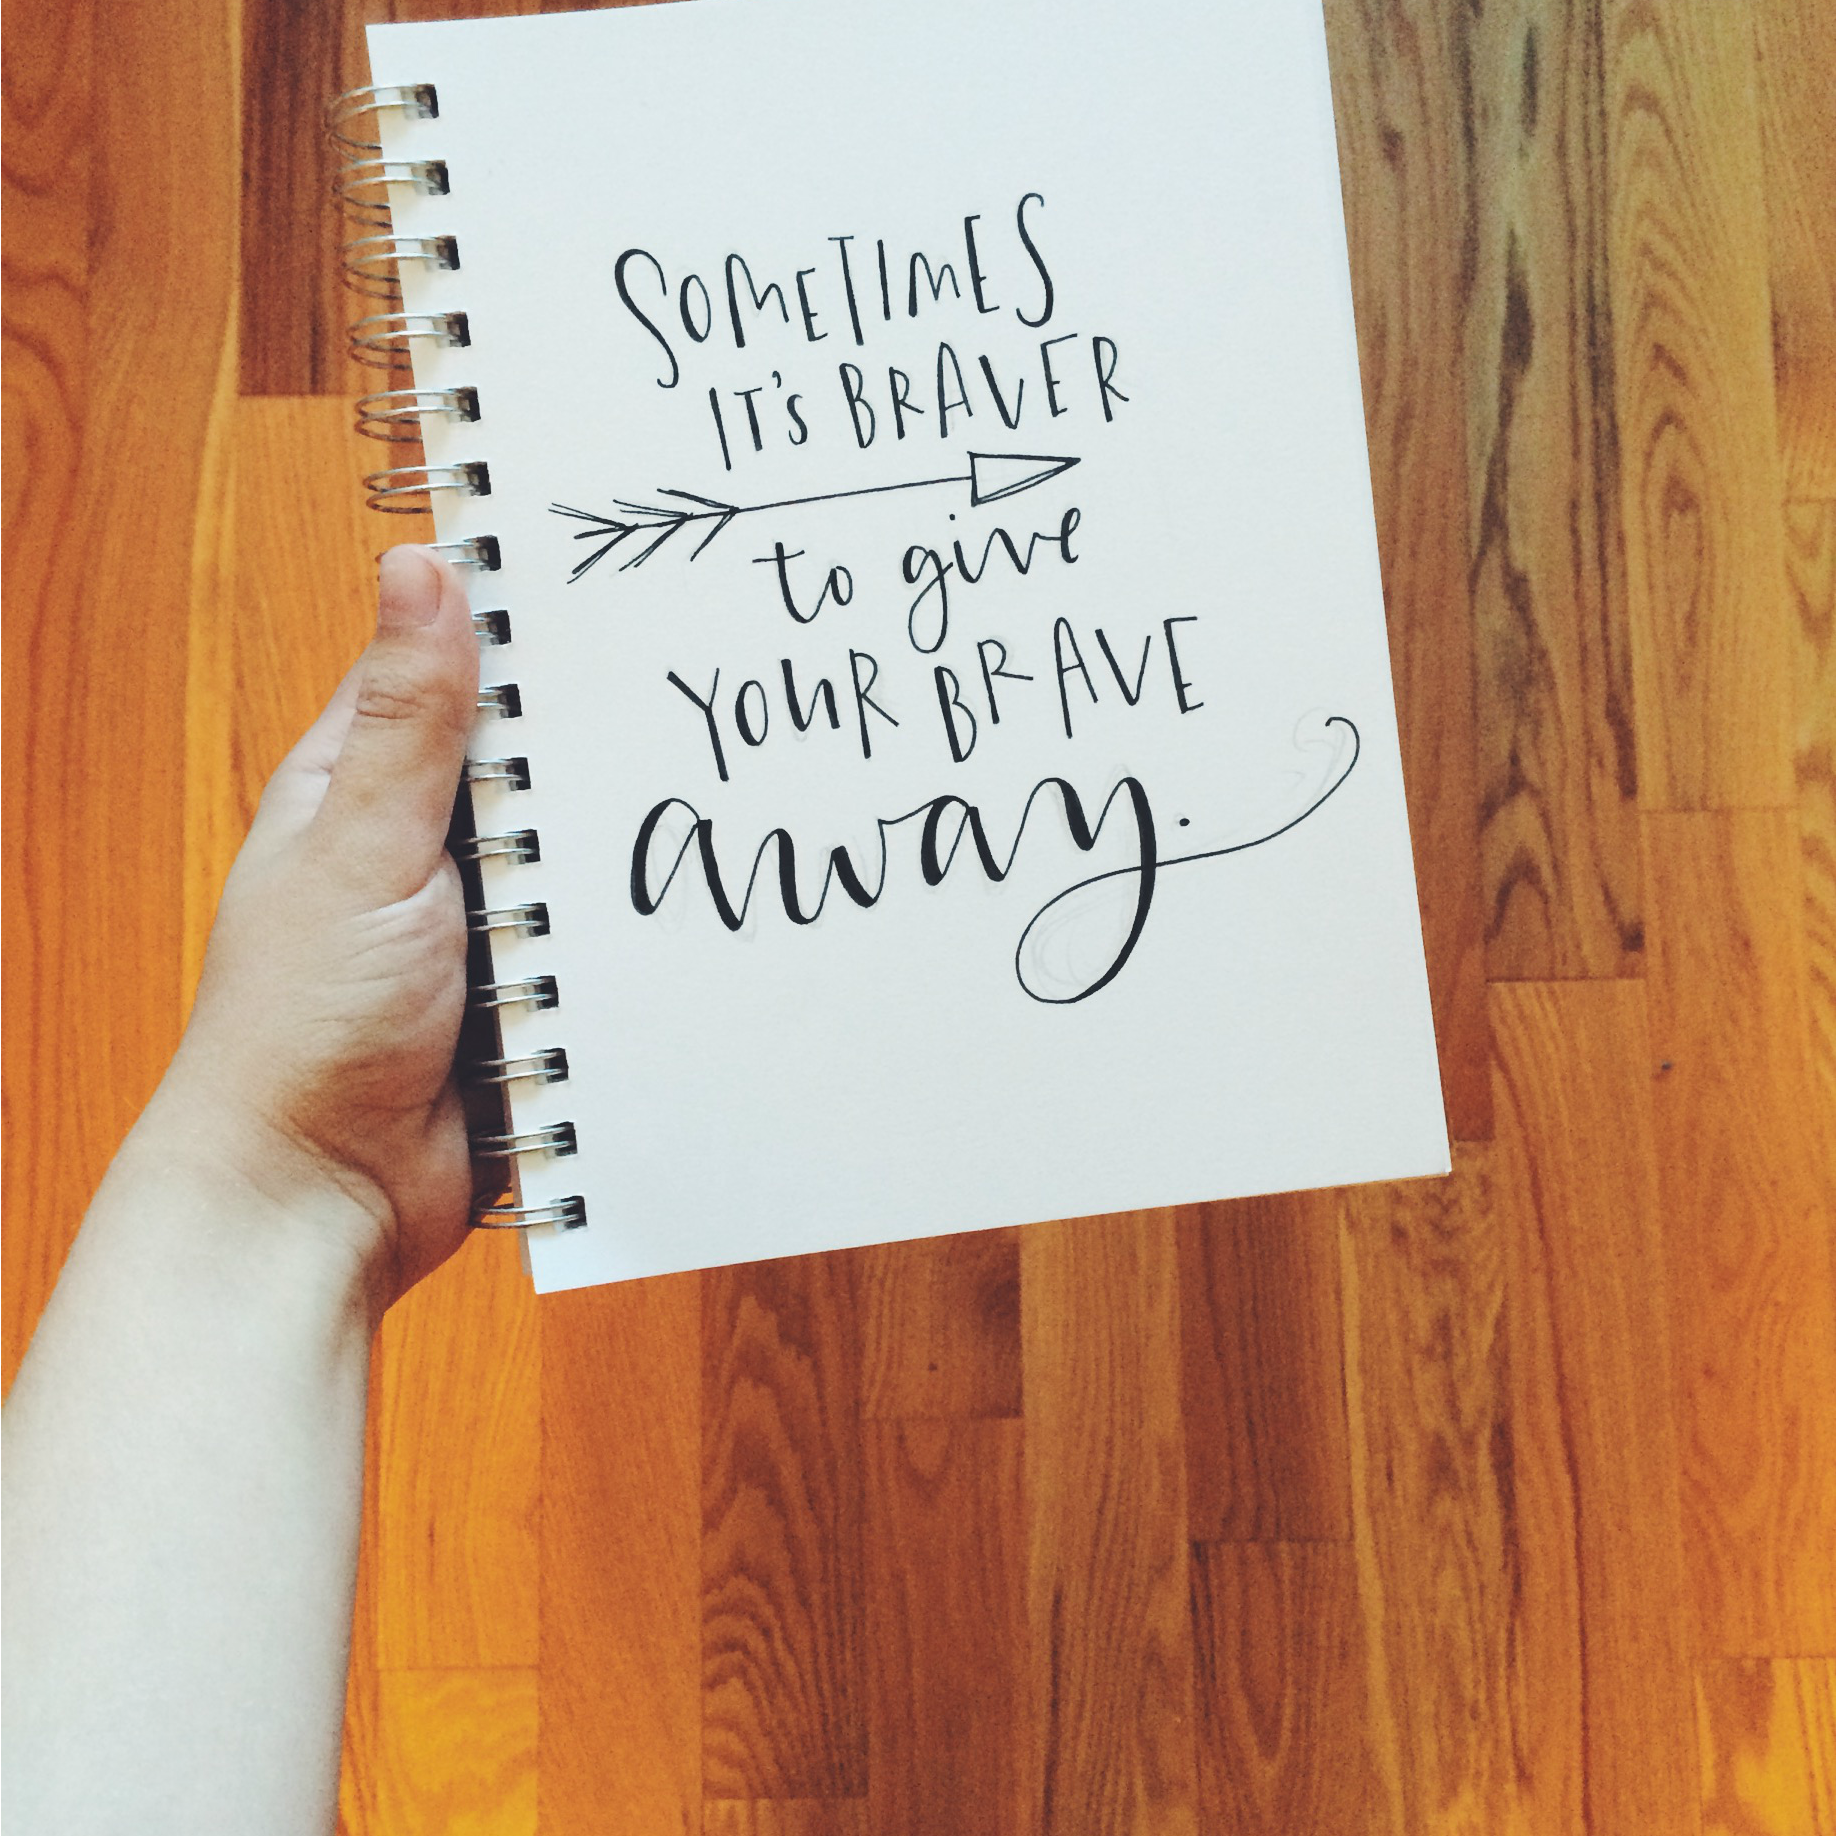 SOMETIMES
IT'S BRAVER
to give
YOUR BRAVE
away.